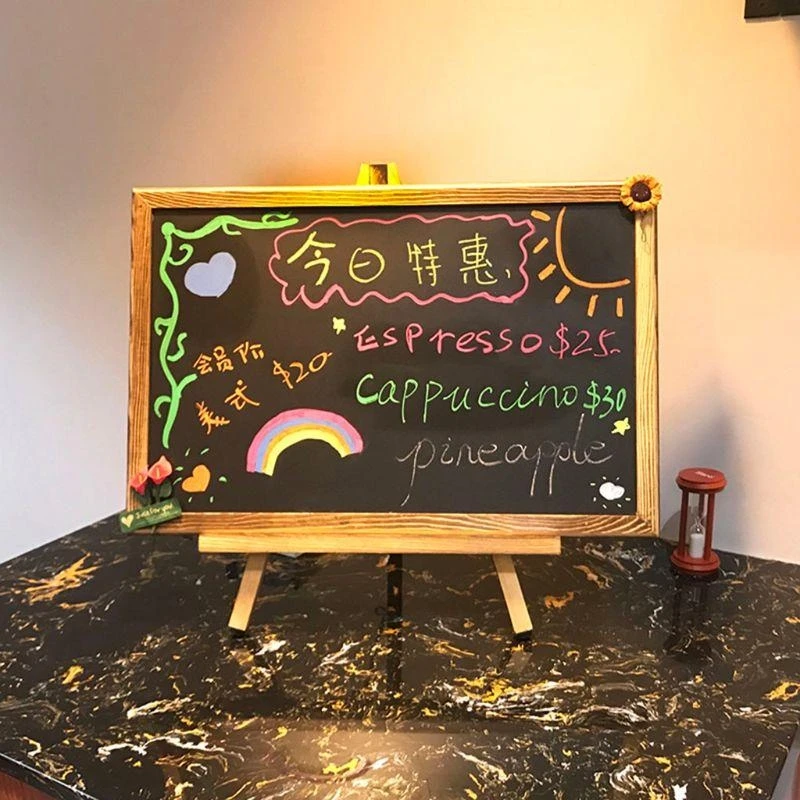 今日特惠
Espresso $25
会员价
美式 $20
Cappuccino $30
pineapple